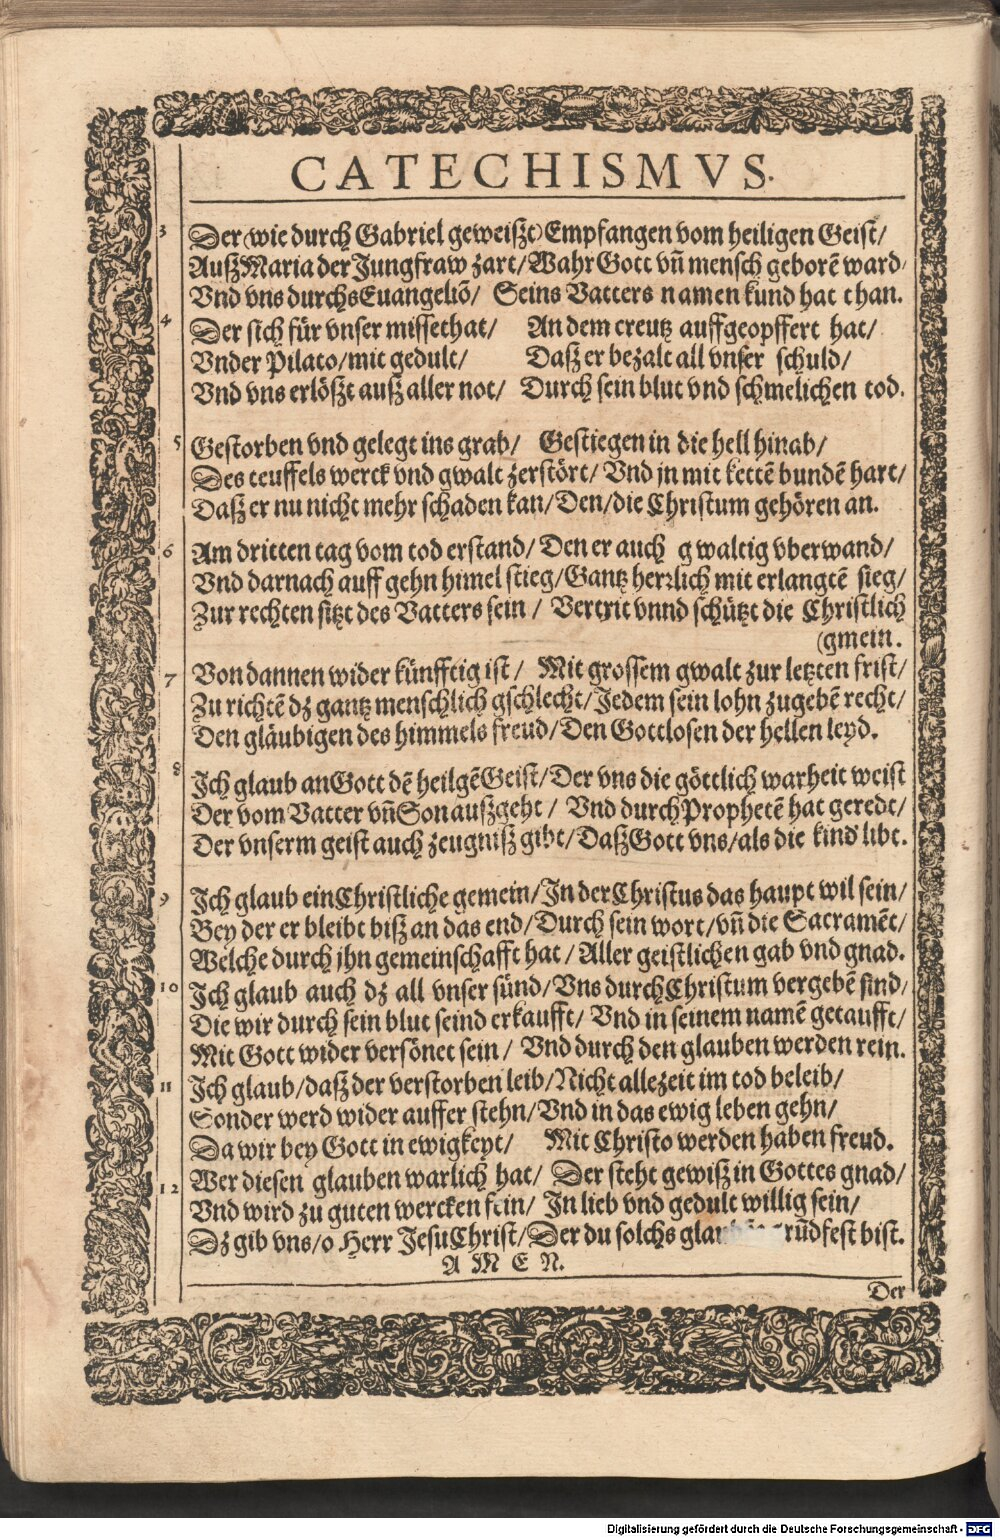 CATECHISMVS.
3 Der (wie durch Gabriel geweiszt) Empfangen vom heiligen Geist/
Ausz Maria der Jungfraw zart/ Wahr Gott vñ mensch geborẽ ward/
Vnd vns durchs Euangeliõ/ Seins Vatters namen kund hat than.
4 Der sich für vnser missethat/ An dem creutz auffgeopffert hat/
Vnder Pilato/ mit gedult/ Dasz er bezalt all vnser schuld/
Vnd vns erlöszt ausz aller not/ Durch sein blut vnd schmelichen tod.
5 Gestorben vnd gelegt ins grab/ Gestiegen in die hell hinab/
Des teuffels werck vnd gwalt zerstört/ Vnd jn mit kettẽ bundẽ hart/
Dasz er nu nicht mehr schaden kan/ Den/ die Christum gehören an.
6 Am dritten tag vom tod erstand/ Den er auch gwaltig vberwand/
Vnd darnach auff gehn himel stieg/ Gantz herrlich mit erlangtẽ sieg/
Zur rechten sitzt des Vatters sein/ Vertrit vnnd schützt die Christlich
(gmein.
7 Von dannen wider künfftig ist/ Mit grossem gwalt zur letzten frist/
Zu richtẽ dz gantz menschlich gschlecht/ Jedem sein lohn zugebẽ recht/
Den gläubigen des himmels freud/ Den Gottlosen der hellen leyd.
8 Ich glaub an Gott dẽ heilgẽ Geist/ Der vns die göttlich warheit weist
Der vom Vatter vñ Son auszgeht/ Vnd durch Prophetẽ hat geredt/
Der vnserm geist auch zeugnisz gibt/ Dasz Gott vns/ als die kind libt.
9 Ich glaub ein Christliche gemein/ In der Christus das haupt wil sein/
Bey der er bleibt bisz an das end/ Durch sein wort/ vñ die Sacramẽt/
Welche durch jhn gemeinschafft hat/ Aller geistlichen gab vnd gnad.
10 Ich glaub auch dz all vnser sünd/ Vns durch Christum vergebẽ sind/
Die wir durch sein blut seind erkaufft/ Vnd in seinem namẽ getaufft/
Mit Gott wider versönet sein/ Vnd durch den glauben werden rein.
11 Ich glaub/ dasz der verstorben leib/ Nicht allezeit im tod beleib/
Sonder werd wider auffer stehn/ Vnd in das ewig leben gehn/
Da wir bey Gott in ewigkeyt/ Mit Christo werden haben freud.
12 Wer diesen glauben warlich hat/ Der steht gewisz in Gottes gnad/
Vnd wird zu guten wercken fein/ In lieb vnd gedult willig sein/
Dz gib vns/ o Herr Jesu Christ/ Der du solchs bist.
AMEN.
Der
Digitalisierung gefördert durch die Deutsche Forschungsgemeinschaft - DFG